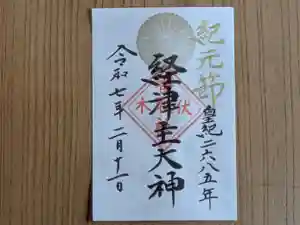 紀元節
皇紀二六八五年
経津主大神
令和七年二月十一日